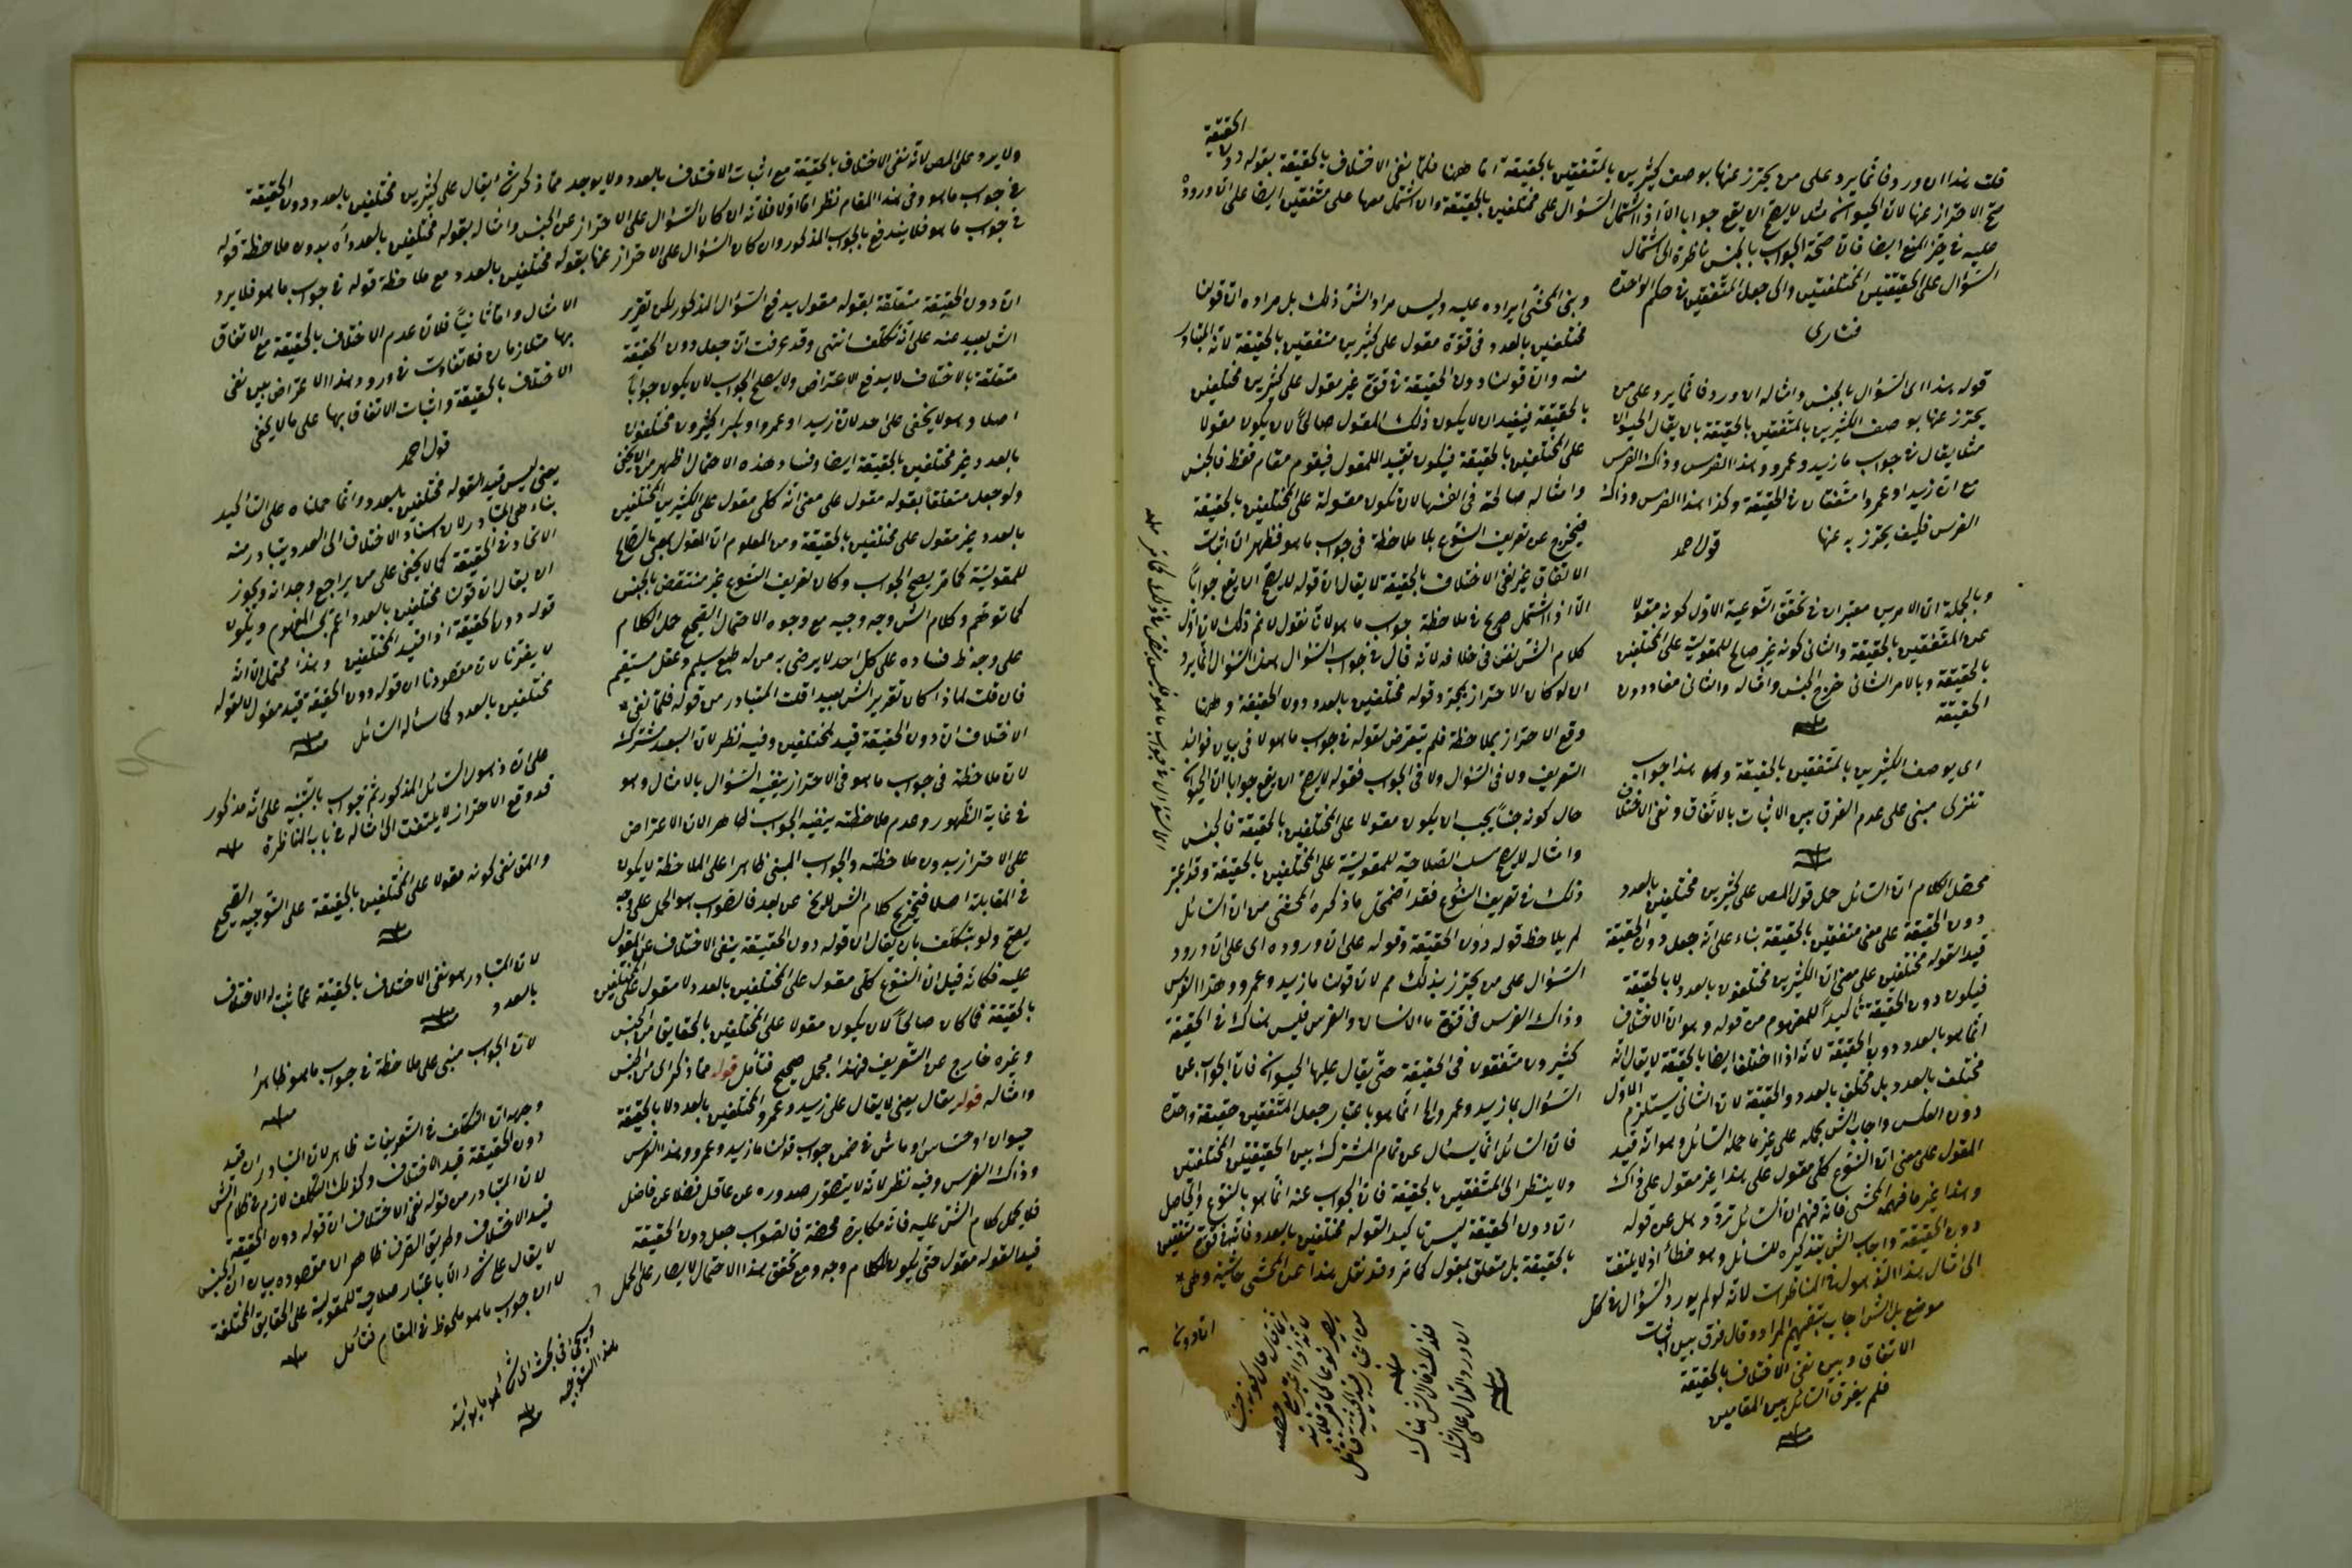 قلت هذا ان ورد فانما يرد على من يحترز عنها بوصف كثيرين بالمتفقين بالحقيقة اما ههنا فلما نفى الاختلاف بالحقيقة بقوله دون الحقيقة
صح الاحتراز عنها لان الحيوان مثلا لا يصح ان يقع جوابا الا اذا اشتمل السؤال على مختلفين بالحقيقة وان اشتمل معها على متفقين ايضا على ان وروده
عليه في حيز المنع ايضا فان صحة الجواب بالجنس ناظرة الى اشتمال
السؤال على الحقيقتين المختلفتين والى جعل المتفقين في حكم الواحدة
فناري
قوله هذا اى السؤال بالجنس وامثاله ان ورد فانما يرد على من
يحترز عنها بوصف الكثيرين بالمتفقين بالحقيقة بان يقال الحيوان
مثلا يقال في جواب ما زيد وعمرو وهذا الفرس وذاك الفرس
مع ان زيدا وعمروا متفقان في الحقيقة وكذا هذا الفرس وذاك
الفرس فكيف يحترز به عنها
قول احمد
وبالجملة ان الامرين معتبران في تحقق النوعية الاول كونه مقولا
على المتفقين بالحقيقة والثاني كونه غير صالح للمقولية على المختلفين
بالحقيقة وبالامر الثاني خرج الجنس وامثاله والثاني مفاد دون
الحقيقة
منه
اى بوصف الكثيرين بالمتفقين بالحقيقة هذا جواب
تنزلى مبنى على عدم الفرق بين الاثبات بالاتفاق ونفى الاختلاف
منه
محصل الكلام ان السائل حمل قول المص على كثيرين مختلفين بالعدد
دون الحقيقة على معنى متفقين بالحقيقة بناء على انه جعل دون الحقيقة
قيدا لقوله مختلفين على معنى ان الكثيرين مختلفون بالعدد لا بالحقيقة
فيكون دون الحقيقة تأكيدا للمفهوم من قوله وهو ان الاختلاف
انما هو بالعدد دون الحقيقة لانه اذا اختلفا ايضا بالحقيقة لا يقال انه
مختلف بالعدد بل مختلف بالعدد والحقيقة لان الثاني يستلزم الاول
دون العكس واجاب الش بحمله على غير ما حمله السائل وهو انه قيد
المقول على معنى ان النوع كلي مقول على هذا غير مقول على ذاك
وهذا غير ما فهمه المحشى فانه فهم ان السائل تردد وهل عن قوله
دون الحقيقة واجاب الش بتذكيره للسائل وهو خطأ اذ لا يلتفت
الى امثال هذا الذهول في المناظرات لانه لو لم يورد السؤال في كل
موضع بل الش اجاب بتفهيم المراد وقال فرق بين اثبات
الاتفاق وبين نفى الاختلاف بالحقيقة
فلم يفرق السائل بين المقامين
منه
وبنى المحشى ايراده عليه وليس مراد الش ذلك بل مراده ان قولنا
مختلفين بالعدد في قوة مقول على كثيرين متفقين بالحقيقة لانه المتبادر
منه وان قولنا دون الحقيقة في قوة غير مقول على كثيرين مختلفين
بالحقيقة فيفيد ان لا يكون ذلك المقول صالحا لان يكون مقولا
على المختلفين بالحقيقة فيكون تقييد المقول فيقوم مقام فقط فالجنس
وامثاله صالحة في انفسها لان تكون مقولة على المختلفين بالحقيقة
فيخرج عن تعريف النوع بلا ملاحظة في جواب ما هو فظهر ان اثبات
الاتفاق غير نفى الاختلاف بالحقيقة لا يقال ان قوله لا يصح ان يقع جوابا
الا اذا اشتمل صريح في ملاحظة جواب ما هو لانا نقول لا نم ذلك لان اول
كلام الش نص في خلافه لانه قال في جواب السؤال هذا السؤال انما يرد
ان لو كان الاحتراز بمجرد قوله مختلفين بالعدد دون الحقيقة وههنا
وقع الاحتراز بملاحظة فلم يتعرض لقوله في جواب ما هو لا في بيان فوائد
التعريف ولا في السؤال ولا في الجواب فقوله لا يصح ان يقع جوابا ان الحيوان
حال كونه جنسا يجب ان يكون مقولا على المختلفين بالحقيقة فالجنس
وامثاله لا يصح سلب الصلاحية للمقولية على المختلفين بالحقيقة وقد اعتبر
ذلك في تعريف النوع فقد اضمحل ما ذكره المحشى من ان السائل
لم يلاحظ قوله دون الحقيقة وقوله على ان وروده اى على ان ورود
السؤال على من يحترز بذلك مم لان قولنا ما زيد وعمرو وهذا الفرس
وذاك الفرس في قوة ما الانسان والفرس فليس هناك في الحقيقة
كثيرون متفقون في الحقيقة حتى يقال عليها الحيوان فان الجواب عن
السؤال بما زيد وعمرو الخ انما هو باعتبار جعل المتفقين حقيقة واحدة
فان السائل انما يسئال عن تمام المشترك بين الحقيقتين المختلفتين
ولا ينظر الى المتفقين بالحقيقة فان الجواب عنه انما هو بالنوع والحاصل
ان دون الحقيقة ليس تأكيدا لقوله مختلفين بالعدد فانه في قوة متفقين
بالحقيقة بل متعلق بمقول كما مر وقد نقل هذا عن المحشى حاشية وهى
ان دون
ولا يرد على المص لانه نفى الاختلاف بالحقيقة مع اثبات الاختلاف بالعدد ولا يوجد مما ذكر شئ يقال على كثيرين مختلفين بالعدد دون الحقيقة
في جواب ما هو وفي هذا المقام نظر اما اولا فلانه ان كان السؤال على الاحتراز عن الجنس وامثاله بقوله مختلفين بالعدد آه بدون ملاحظة قوله
في جواب ما هو فلا يندفع بالجواب المذكور وان كان السؤال على الاحتراز عنها بقوله مختلفين بالعدد مع ملاحظة قوله في جواب ما هو فلا يرد
الامثال واما ثانيا فلان عدم الاختلاف بالحقيقة مع الاتفاق
بها متلازمان فلا تفاوت في ورود هذا الاعتراض بين نفى
الاختلاف بالحقيقة واثبات الاتفاق بها على ما لا يخفى
قول احمد
ان دون الحقيقة متعلقة بقوله مقول يدفع السؤال المذكور لكن تقرير
الش بعيد عنه على انه تكلف انتهى وقد عرفت ان جعل دون الحقيقة
متعلقة بالاختلاف لا يدفع الاعتراض ولا يصلح الجواب لان يكون جوابا
اصلا وهو لا يخفى على احد لان زيدا وعمروا وبكرا كثيرون مختلفون
بالعدد غير مختلفين بالحقيقة ايضا وفساد هذه الاحتمال اظهر من ان يخفى
ولو جعل متعلقا بقوله مقول على معنى انه كلى مقول على الكثيرين المختلفين
بالعدد غير مقول على مختلفين بالحقيقة ومن المعلوم ان المقول بمعنى الصالح
للمقولية كما مر يصح الجواب وكان تعريف النوع غير منتقض بالجنس
كما توهم وكلام الش وجه وجيه مع وجوه الاحتمال الصحيح حمل الكلام
على وجه ظ فساده على كل احد لا يرضى به من له طبع سليم وعقل مستقيم
فان قلت لماذا كان تقرير الش بعيدا قلت المتبادر من قوله فلما نفى
الاختلاف ان دون الحقيقة قيد لمختلفين وفيه نظر لان البعد مشترك
لان ملاحظة في جواب ما هو في الاحتراز ينفيه السؤال بالامثال وهو
في غاية الظهور وعدم ملاحظته ينفيه الجواب ظاهرا لان الاعتراض
على الاحتراز بدون ملاحظته والجواب المبنى ظاهرا على الملاحظة لا يكون
في المقابلة اصلا فتخريج كلام الش لا يخ عن بعد فالصواب هو الحمل على وجه
يصح ولو بتكلف بان يقال ان قوله دون الحقيقة ينفى الاختلاف عن المقول
عليه فكانه قيل ان النوع كلى مقول على المختلفين بالعدد لا مقول على المختلفين
بالحقيقة فما كان صالحا لان يكون مقولا على المختلفين بالحقايق من الجنس
وغيره خارج عن التعريف فهذا مجمل صحيح فتأمل قوله مما ذكر اى من الجنس
وامثاله قوله يقال يعنى لا يقال على زيد وعمرو المختلفين بالعدد لا بالحقيقة
حيوان او حساس او ماش في ضمن جواب قولنا ما زيد وعمرو وهذا الفرس
وذاك الفرس وفيه نظر لانه لا يتصور صدوره عن عاقل فضلا عن فاضل
فلا يحمل كلام الش عليه فانه مكابرة محضة فالصواب جعل دون الحقيقة
قيدا لقوله مقول حتى يكون للكلام وجه ومع تحقق هذا الاحتمال لا يصار على الحمل
يعنى ليس قيدا لقوله مختلفين بالعدد وانما حملناه على التأكيد
بناء على المتبادر لان اسناد الاختلاف الى العدد يتبادر منه
الاتحاد في الحقيقة كما لا يخفى على من يراجع وجدانه ويجوز
ان يقال ان قولنا مختلفين بالعدد اعم بحسب المفهوم ويكون
قوله دون الحقيقة اذا قيد المختلفين وهذا محتمل الا انه
لا يضرنا لان مقصودنا ان قوله دون الحقيقة قيد مقول لا لقوله
مختلفين بالعدد كما سأله السائل
منه
على ان ذهول السائل المذكور ثم جواب بالتنبيه على انه مذكور
قد وقع الاحتراز لا يلتفت الى امثاله في باب المناظرة
منه
والمق نفى كونه مقولا على المختلفين بالحقيقة على التوجيه الصحيح
منه
لان المتبادر هو نفى الاختلاف بالحقيقة عما ثبت له الاختلاف
بالعدد
منه
لان الجواب مبنى على ملاحظة في جواب ما هو ظاهرا
منه
وجه ان التكلف في التعريفات ظاهر لان المتبادر ان قيد
دون الحقيقة قيد الاختلاف وكذلك التكلف لازم في كلام الش
لان المتبادر من قوله نفى الاختلاف ان قوله دون الحقيقة
قيد الاختلاف وطريق الصرف ظاهر ان مقصوده بيان ان الجنس
لا يقال على شئ الا باعتبار صلاحية للمقولية على الحقايق المختلفة
لان جواب ما هو ملحوظ في المقام فتأمل
منه